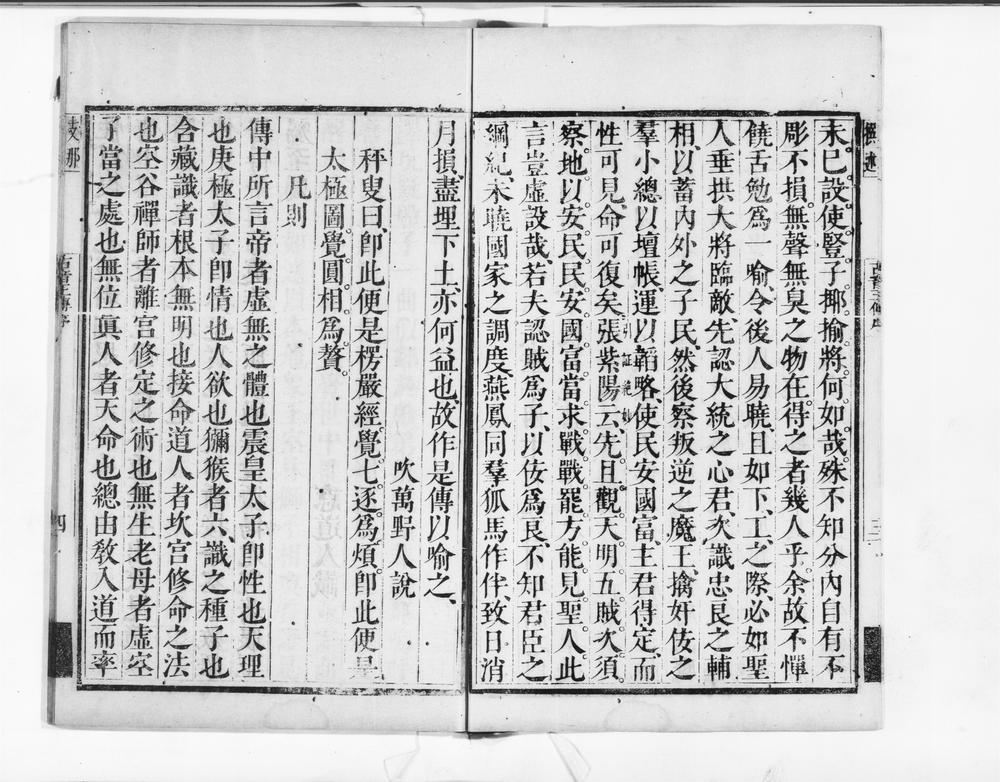 未已。設使。豎子。揶揄。將何如哉。殊不知分內自有不
彫不損。無聲無臭之物在。得之者幾人乎。余故不憚
饒舌勉爲一喻。令後人易曉。且如下。工。之際。必如聖
人垂拱大將臨敵先認大統之心君。次識忠良之輔
相。以蓄內外之子民然後察叛逆之魔王。擒奸佞之
羣小總以壇帳。運以韜略。使民安國富。主君得定。而
性可見命可復矣 引証絶妙 張紫陽云。先且觀天。明五賊。次須
察地。以安民。民安。國富。當求戰。戰罷。方能見聖。人此
言豈虛設哉。若夫認賊爲子。以佞爲良。不知君臣之
綱紀。未曉國家之調度。燕鳳同羣狐馬作伴。致日消
月損。盡埋下土。亦何益也。故作是傳以喻之、
吹萬野人說
秤叟曰。卽此便是楞嚴經。覺七。逐。爲煩。卽此便是
太極圖。覺圓。相。爲贅。
凡則
傳中所言帝者虛無之體也震皇太子卽性也天理
也庚極太子卽情也人欲也獼猴者六識之種子也
含藏識者根本無明也接命道人者坎宮修命之法
也空谷禪師者離宮修定之術也無生老母者虛空
子當之處也無位眞人者天命也總由教入道而率
三
四